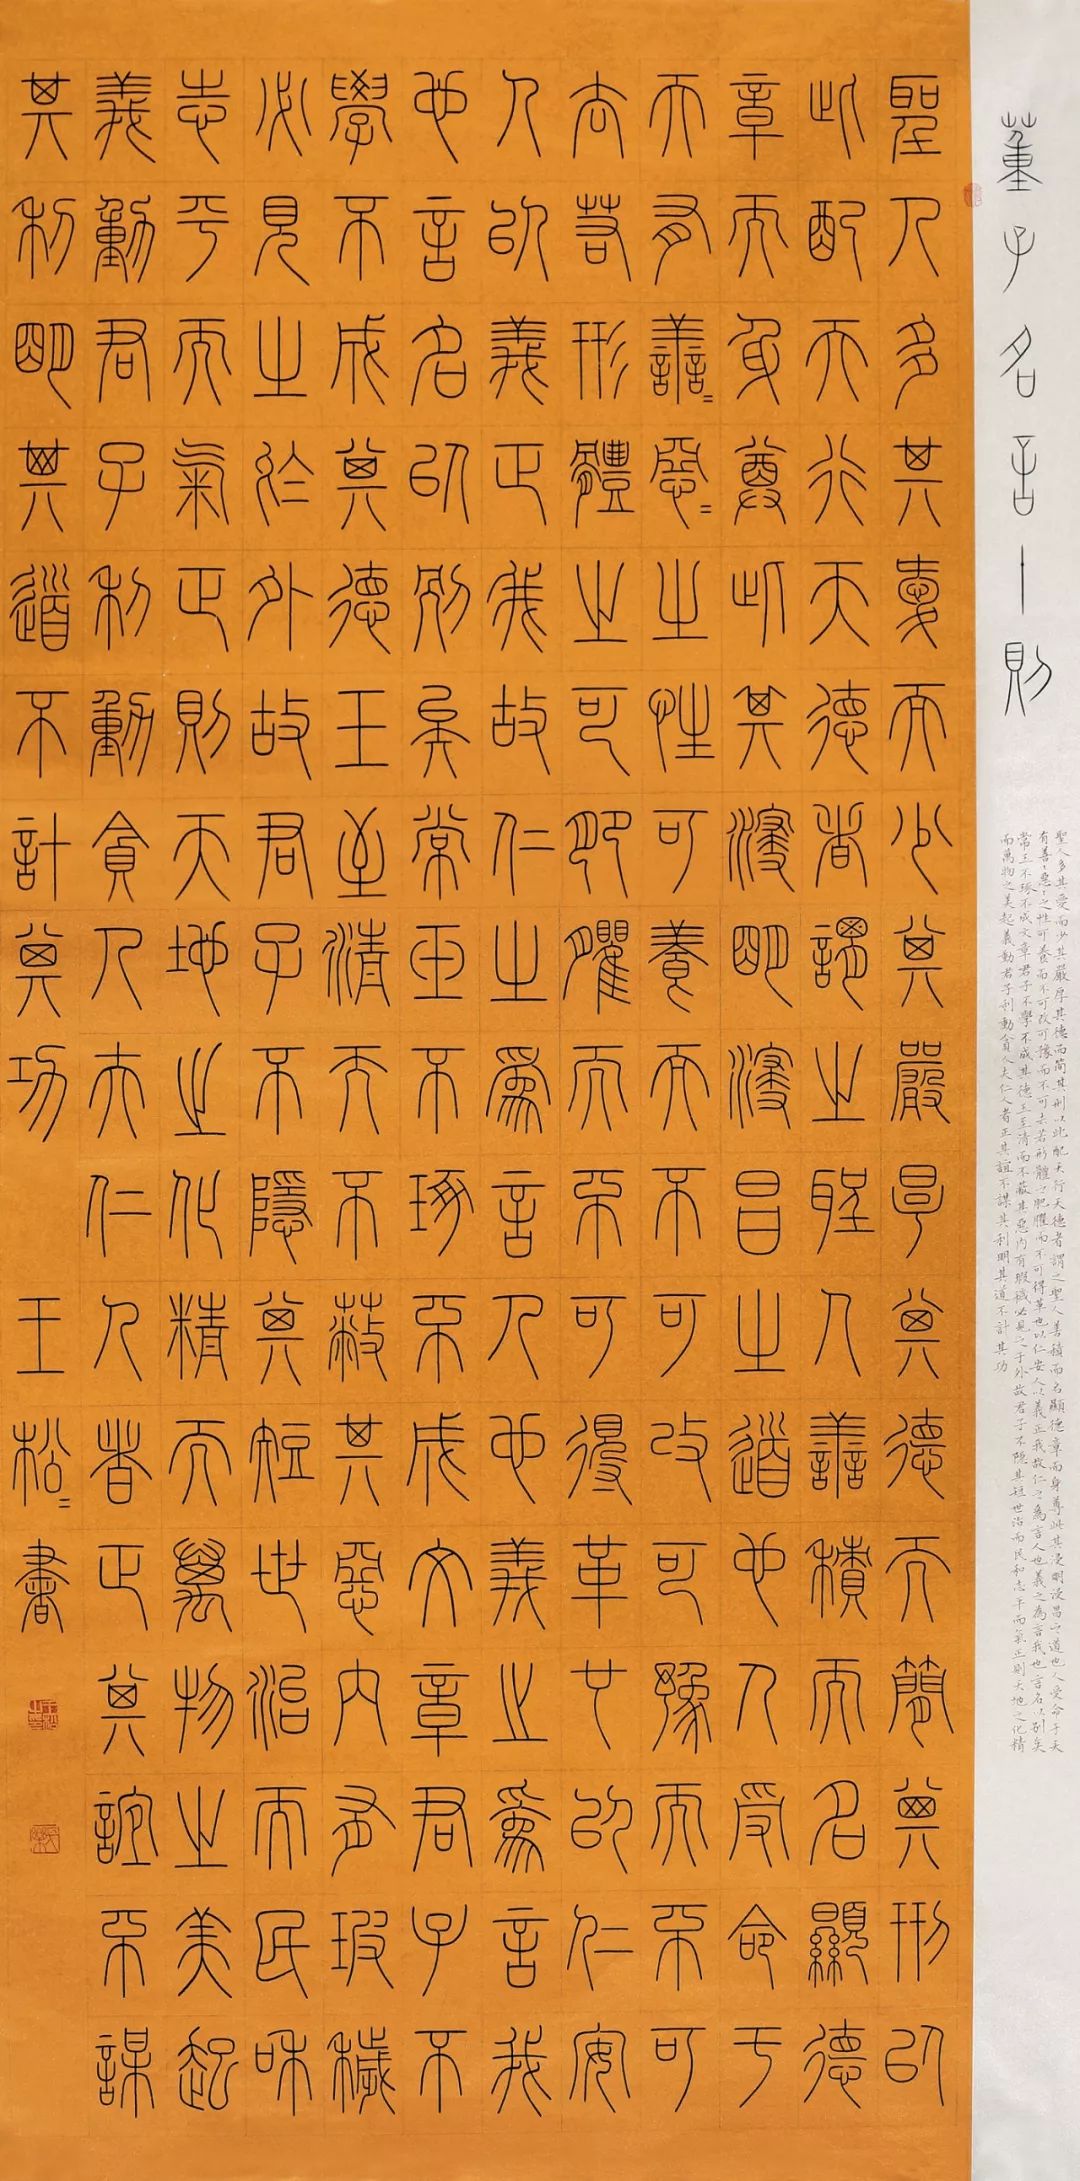 董子名言十則
聖人多其愛而少其嚴厚其德而簡其刑以此配天行天德者謂之聖人善積而名顯德章而身尊此其浸明浸昌之道也人受命于天
有善〻惡〻之性可養而不可改可豫而不可去若形體之肥臞而不可得革也以仁安人以義正我故仁之為言人也義之為言我也言名以別矣
常玉不琢不成文章君子不學不成其德玉至清而不蔽其惡內有瑕穢必見之于外故君子不隱其短世治而民和志平而氣正則天地之化精
而萬物之美起義動君子利動貪人夫仁人者正其誼不謀其利明其道不計其功
聖人多其愛而少其嚴厚其德而簡其刑以
此配天行天德者謂之聖人善積而名顯德
章而身尊此其浸明浸昌之道也人受命于
天有善〻惡〻之性可養而不可改可豫而不可
去若形體之可肥臞而不可得革也以仁安
人以義正我故仁之為言人也義之為言我
也言名以別矣常玉不琢不成文章君子不
學不成其德玉至清而不蔽其惡內有瑕穢
必見之於外故君子不隱其短世治而民和
志平而氣正則天地之化精而萬物之美起
義動君子利動貪人夫仁人者正其誼不謀
其利明其道不計其功 王松〻書